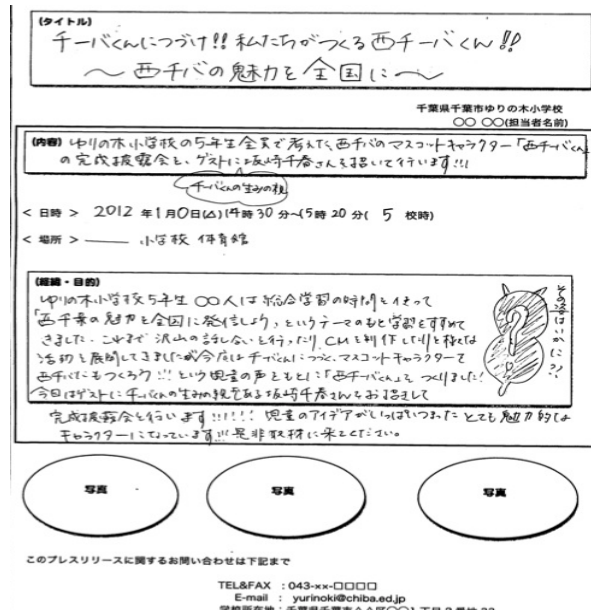 (タイトル)
チーバくんにつづけ!! 私たちがつくる西チーバくん!!
〜西チバの魅力を全国に〜
千葉県千葉市ゆりの木小学校
○○ ○○(担当者名前)
(内容) ゆりの木小学校の5年生全員で考えた、西チバのマスコットキャラクター「西チーバくん」
の完成披露会を、ゲストに坂崎千春さんを招いて行います!!!
チーバくんの生みの親
< 日時 > 2012 年1月0日(△)14時30分〜15時20分( 5 校時)
< 場所 > 小学校 体育館
(組織・目的)
ゆりの木小学校5年生○○人は総合学習の時間を使って
「西千葉の魅力を全国に発信しよう」というテーマのもと学習をすすめて
きました。これまで沢山の話し合いを行ったり、CMを制作したりと様々な
活動を展開してきましたが今度はチーバくんにつづく、マスコットキャラクターを
西チバにもつくろう!!! という児童の声をもとに「西チーバくん」をつくりました!
今日はゲストにチーバくんの生みの親である坂崎千春さんをお招きして
完成披露会を行います!!!!! 児童のアイデアがいっぱいつまったとても魅力的な
キャラクターになっています!!! 是非取材に来てください。
その姿はいかに??
?
写真
写真
写真
このプレスリリースに関するお問い合わせは下記まで
TEL&FAX :043-××-□□□□
E-mail : yurinoki@chiba.ed.jp